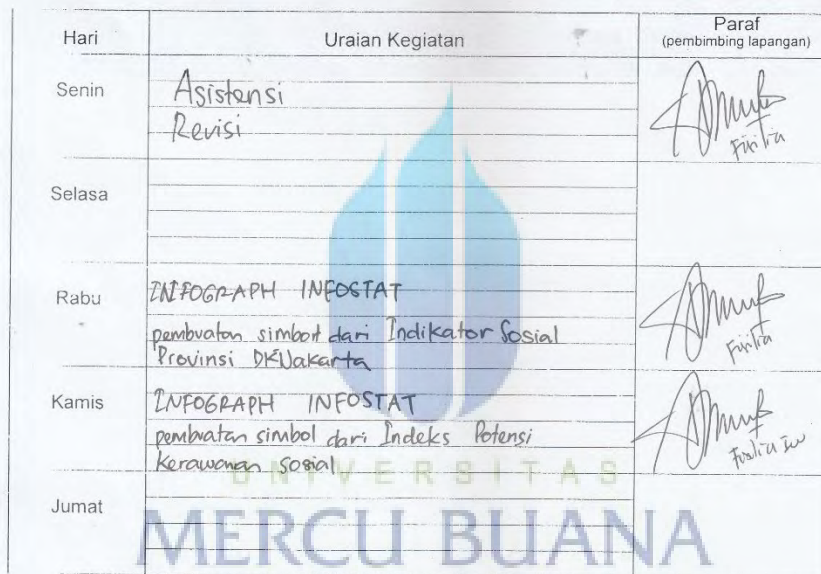 Hari Uraian Kegiatan Paraf
(pembimbing lapangan)
Senin Asistensi
Revisi
Selasa
Rabu INFOGRAPH INFOSTAT
pembuatan simbol dari Indikator Sosial
Provinsi DKI Jakarta
Kamis INFOGRAPH INFOSTAT
pembuatan simbol dari Indeks Potensi
Kerawanan Sosial
UNIVERSITAS
Jumat
MERCU BUANA